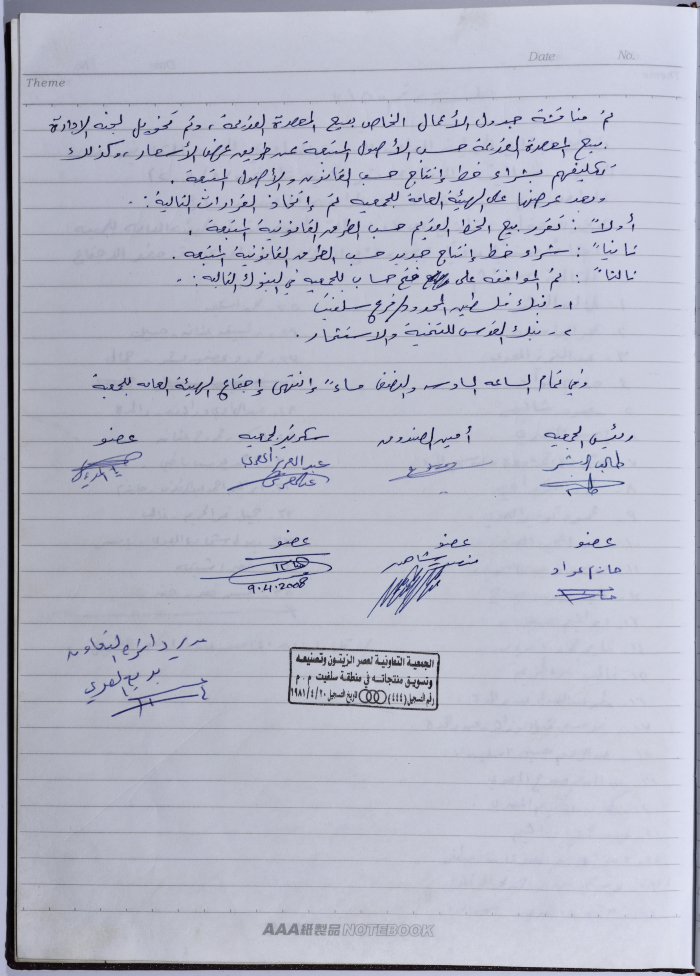 Date No.
Theme
تم مناقشة جدول الأعمال الخاص ببيع المعصرة القديمة ، وتم تخويل لجنة الإدارة
ببيع المعصرة القديمة حسب الأصول المتبعة عن طريق عرض الأسعار ، وكذلك
تكليفهم بشراء خط إنتاج حسب القانون والأصول المتبعة .
وبعد عرضها على الهيئة العامة للجمعية تم إتخاذ القرارات التالية :-
أولاً : تقرر بيع الخط القديم حسب الطرق القانونية المتبعة .
ثانياً : شراء خط إنتاج جديد حسب الطرق القانونية المتبعة .
ثالثاً : تم الموافقة على فتح حساب للجمعية في البنوك التالية :-
١- بنك فلسطين المحدود / فرع سلفيت
٢- بنك القدس للتنمية والاستثمار .
وفي تمام الساعة السادسة والنصف مساءً إنتهى إجتماع الهيئة العامة للجمعية
رئيس الجمعية أمين الصندوق سكرتير الجمعية عضو
طالب
عبد العزيز
عضو عضو عضو
حازم عواد
9.4.2008
مدير دائرة التعاون
الجمعية التعاونية لعصر الزيتون وتصنيعه
وتسويق منتجاته في منطقة سلفيت م . م
رقم التسجيل (٤٤٤) تاريخ التسجيل ١٩٨١/٤/٢٠
AAA紙製品 NOTEBOOK